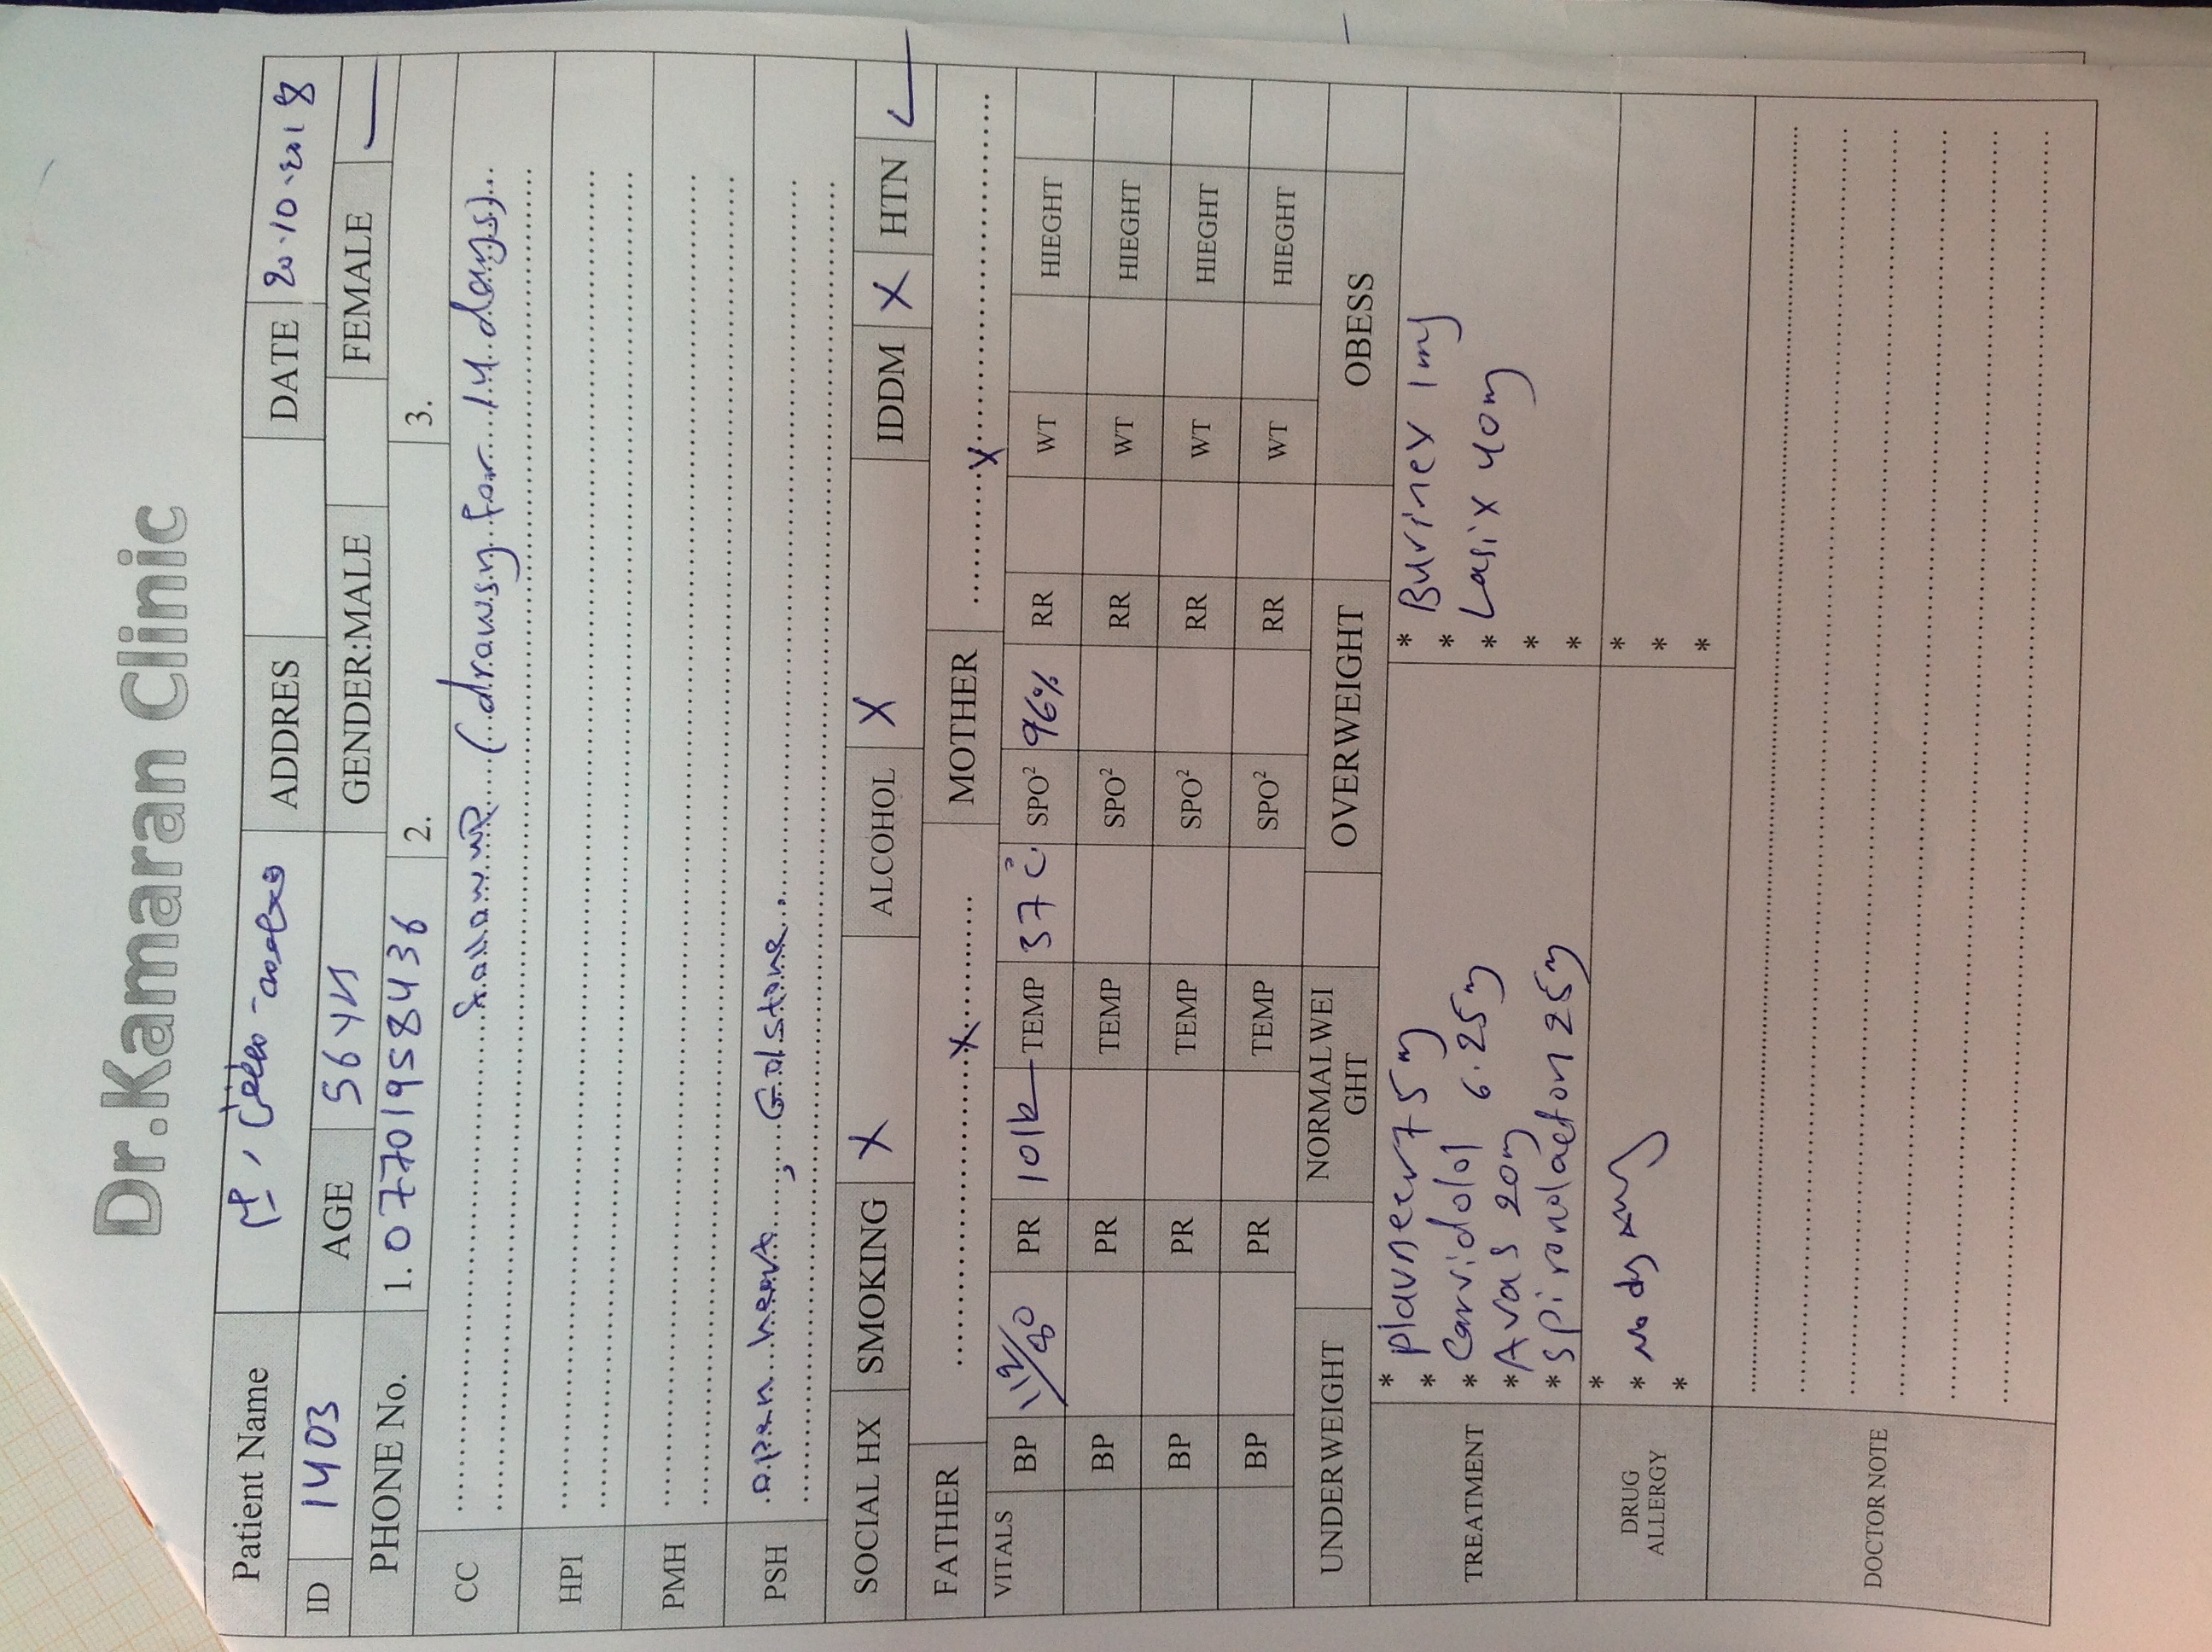 Dr.Kamaran Clinic
Patient Name ADDRES DATE 20.10.2018
ID 1403 AGE 56 yrs GENDER:MALE FEMALE
PHONE No. 1. 07701958436 2. 3.
CC follow up (drawsy for 14 days)
HPI
PMH
PSH open heart, Galstone.
SOCIAL HX SMOKING X ALCOHOL X IDDM X HTN ✓
FATHER X MOTHER X
VITALS BP PR TEMP 37 c SPO² 96% RR WT HIEGHT
BP PR TEMP SPO² RR WT HIEGHT
BP PR TEMP SPO² RR WT HIEGHT
BP PR TEMP SPO² RR WT HIEGHT
UNDERWEIGHT NORMALWEI
GHT OVERWEIGHT OBESS
TREATMENT
* * * * *
Carvidolol 6.25 m
Avas 20m
Spironolacton 25m
* Burinex 1 mg
* * Lasix 40 m
* *
DRUG
ALLERGY
* * No *
* * *
DOCTOR NOTE